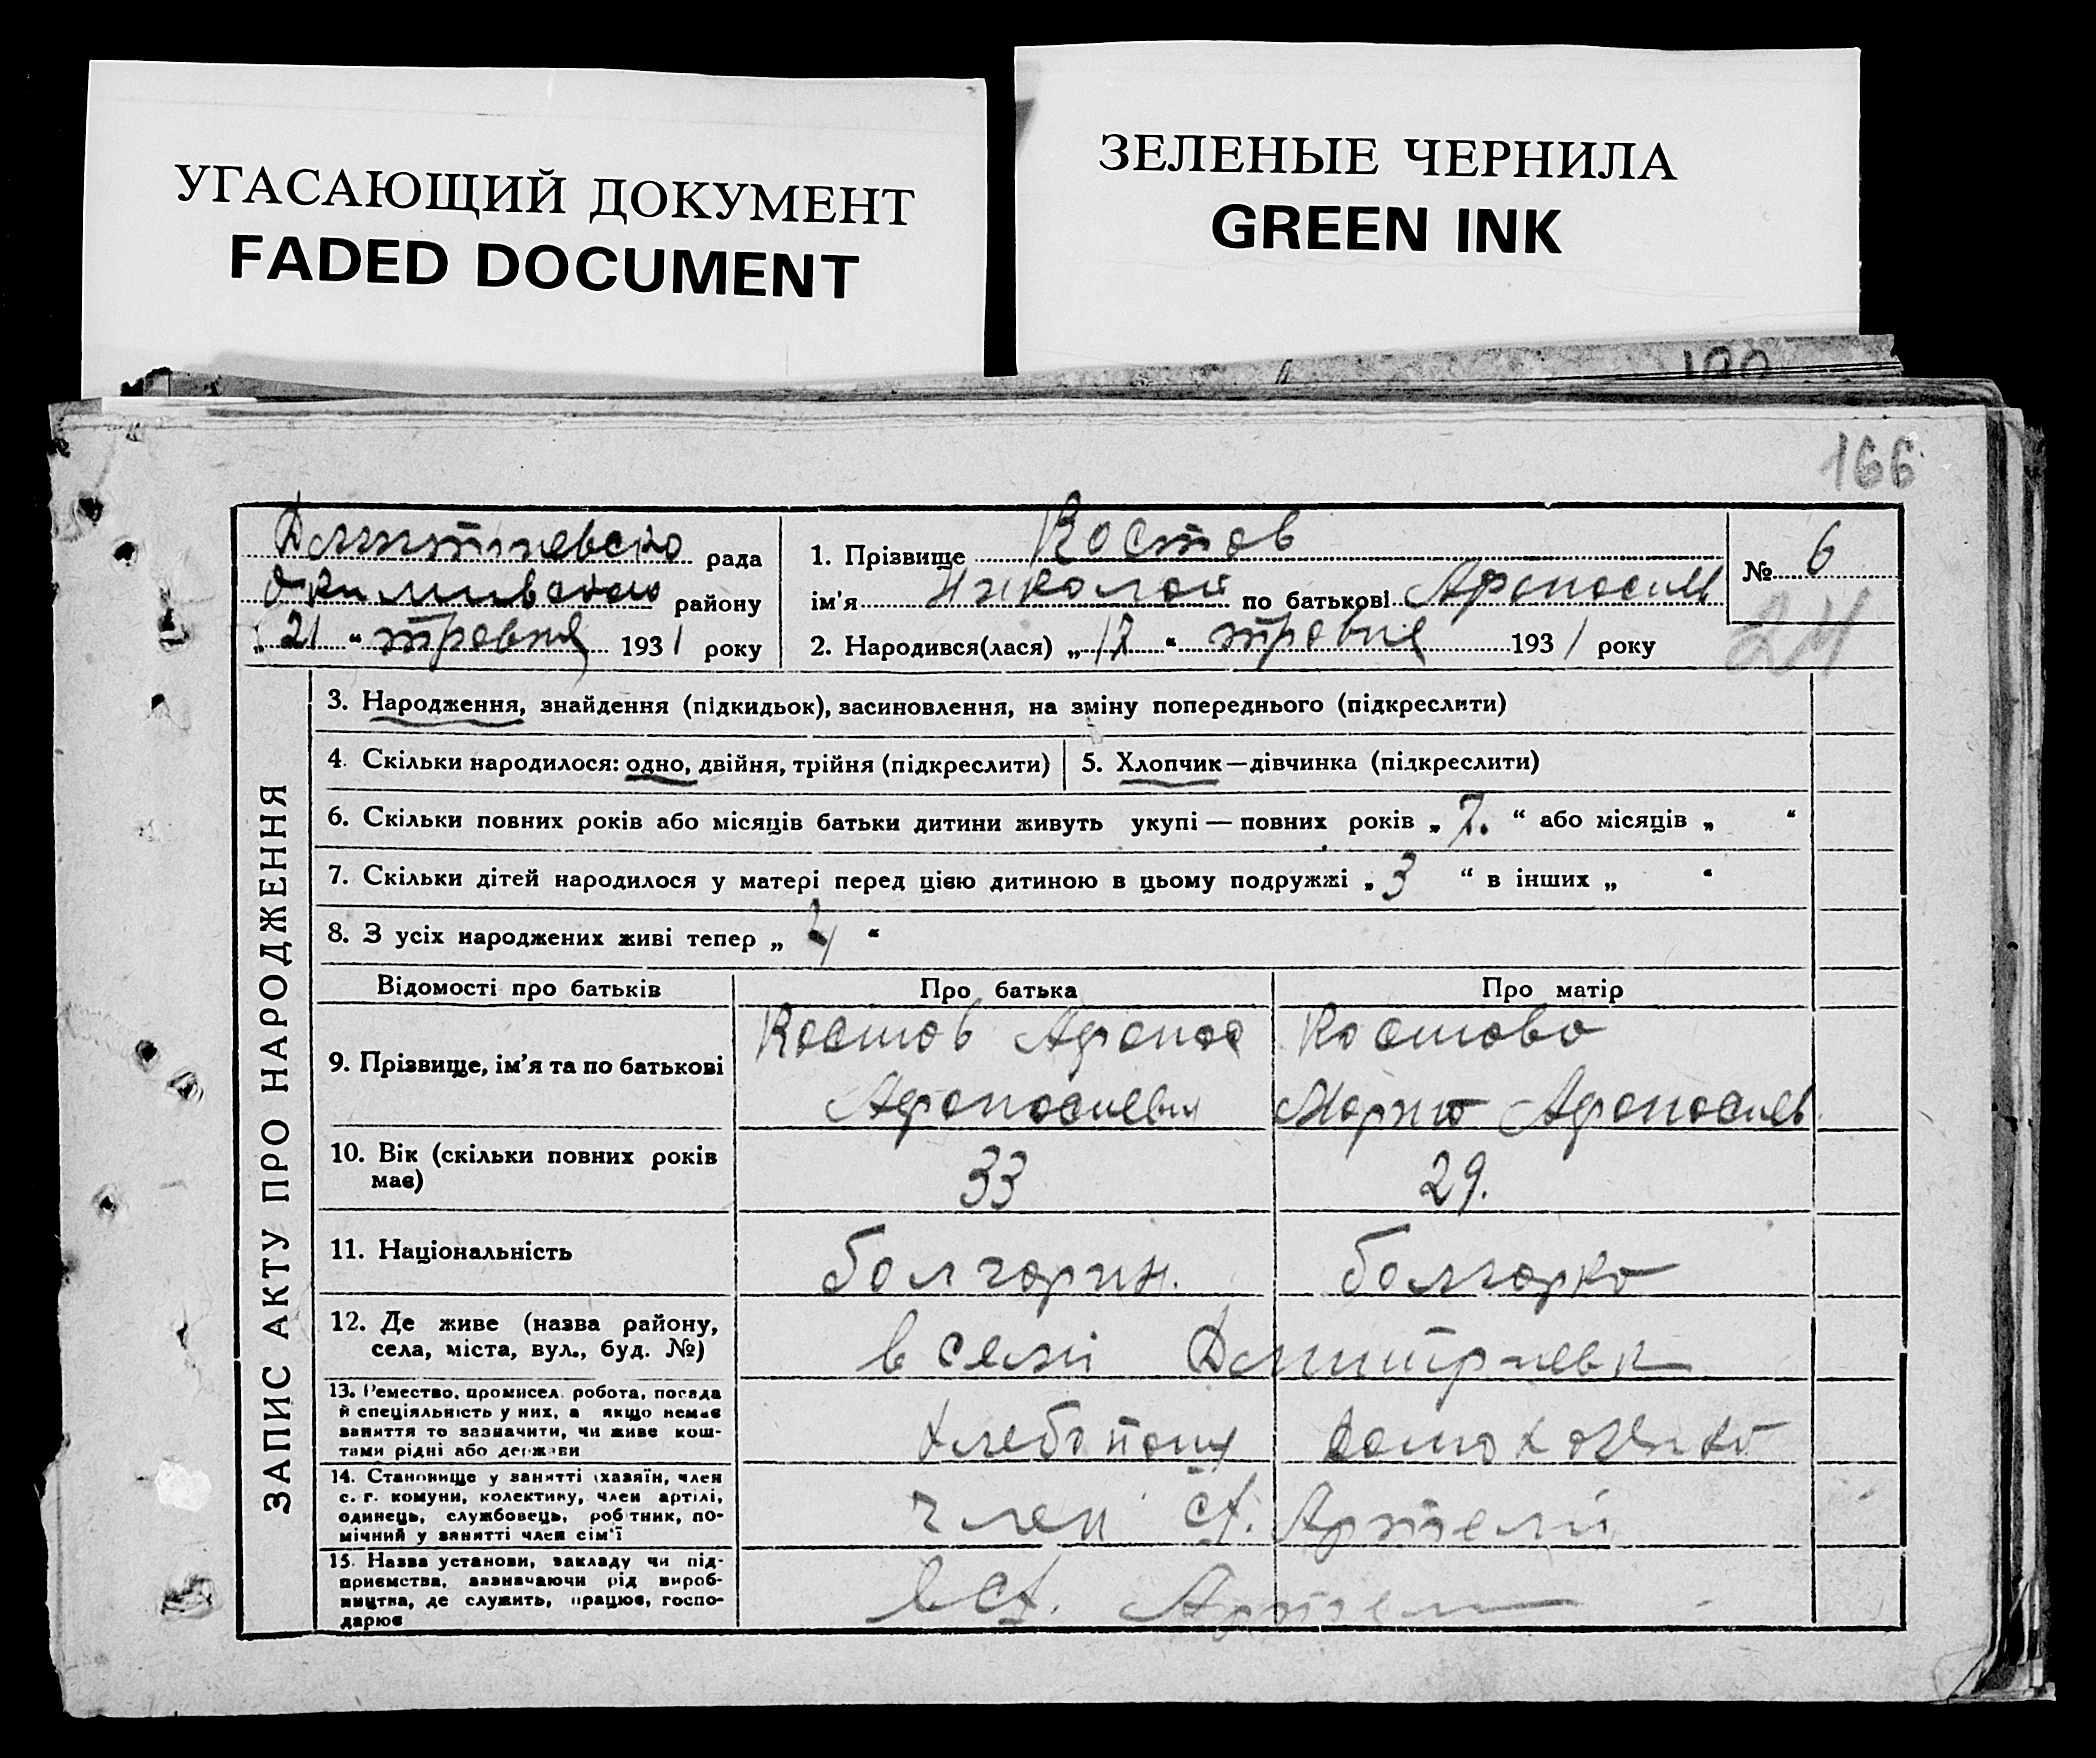 УГАСАЮЩИЙ ДОКУМЕНТ
FADED DOCUMENT
ЗЕЛЕНЫЕ ЧЕРНИЛА
GREEN INK
166
рада
району
„ 21 “ травня 1931 року
1. Прізвище Костов
ім'я Николай по батькові Афанасиев
2. Народився(лася) „ 17 “ травня 1931 року
№ 6
24
ЗАПИС АКТУ ПРО НАРОДЖЕННЯ
3. Народження, знайдення (підкидьок), засиновлення, на зміну попереднього (підкреслити)
4. Скільки народилося: одно, двійня, трійня (підкреслити)
5. Хлопчик—дівчинка (підкреслити)
6. Скільки повних років або місяців батьки дитини живуть укупі — повних років „ 7. “ або місяців „ “
7. Скільки дітей народилося у матері перед цією дитиною в цьому подружжі „ 3 “ в інших „ “
8. З усіх народжених живі тепер „ 4 “
Відомості про батьків
Про батька
Про матір
9. Прізвище, ім'я та по батькові
Костов Афанас
Афанасиевич
Костова
Мария Афанасиев
10. Вік (скільки повних років
має)
33
29.
11. Національність
болгарин.
болгарка
12. Де живе (назва району,
села, міста, вул., буд. №)
в селі Дмитриевк
13. Ремество, промисел, робота, посада
й спеціяльність у них, а якщо немає
заняття то зазначити, чи живе кош-
тами рідні або держави
хлебопащ
домохозяйка
14. Становище у занятті (хазяїн, член
с.-г. комуни, колективу, член артілі,
одинець, службовець, робітник, по-
мічний у занятті член сім'ї
член с/. Артели
15. Назва установи, закладу чи під-
приємства, зазначаючи рід вироб-
ництва, де служить, працює, госпо-
дарює
в с/. Артели